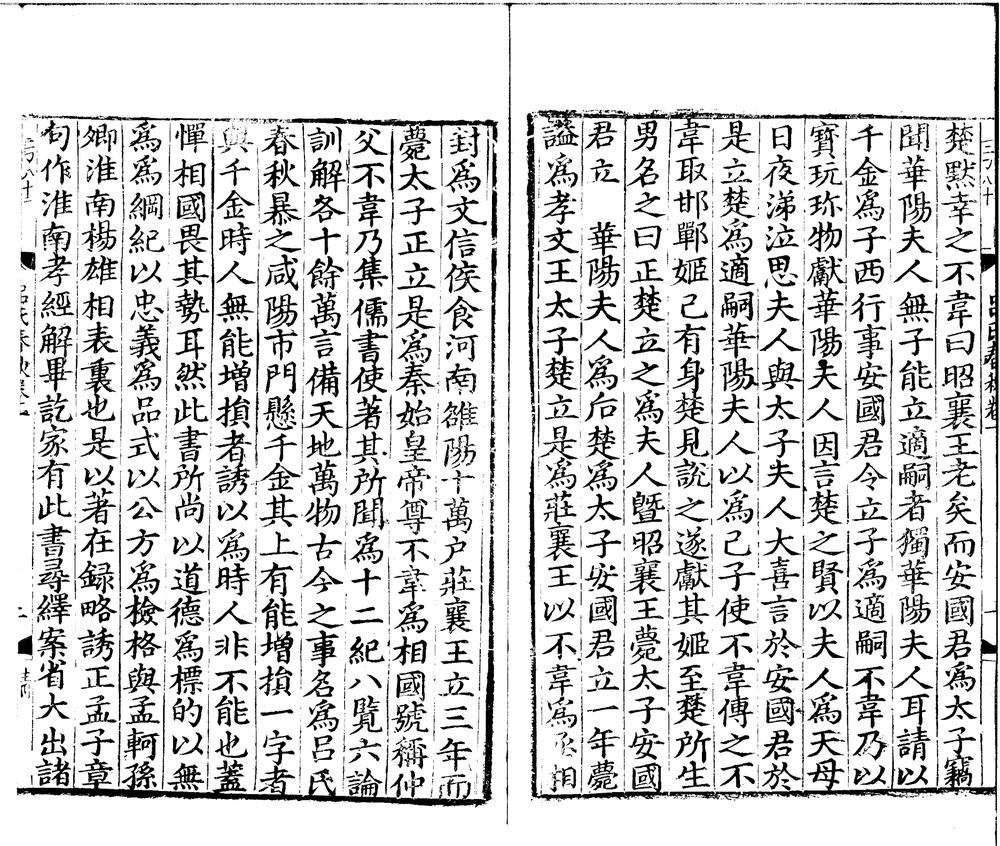 楚黙幸之不韋曰昭襄王老矣而安國君爲太子竊
聞華陽夫人無子能立適嗣者獨華陽夫人耳請以
千金爲子西行事安國君令立子爲適嗣不韋乃以
寶玩珎物獻華陽夫人因言楚之賢以夫人爲天母
日夜涕泣思夫人與太子夫人大喜言於安國君於
是立楚爲適嗣華陽夫人以爲己子使不韋傅之不
韋取邯鄲姬已有身楚見說之遂獻其姬至楚所生
男名之曰正楚立之爲夫人曁昭襄王薨太子安國
君立　華陽夫人爲后楚爲太子安國君立一年薨
謚爲孝文王太子楚立是爲莊襄王以不韋爲丞相
封爲文信侯食河南雒陽十萬户莊襄王立三年而
薨太子正立是爲秦始皇帝尊不韋爲相國號稱仲
父不韋乃集儒書使著其所聞爲十二紀八覽六論
訓解各十餘萬言備天地萬物古今之事名爲吕氏
春秋暴之咸陽市門懸千金其上有能增損一字者
與千金時人無能增損者誘以爲時人非不能也蓋
憚相國畏其勢耳然此書所尚以道德爲標的以無
爲爲綱紀以忠義爲品式以公方爲檢格與孟軻孫
卿淮南楊雄相表裏也是以著在録略誘正孟子章
句作淮南孝經解畢訖家有此書尋繹案省大出諸